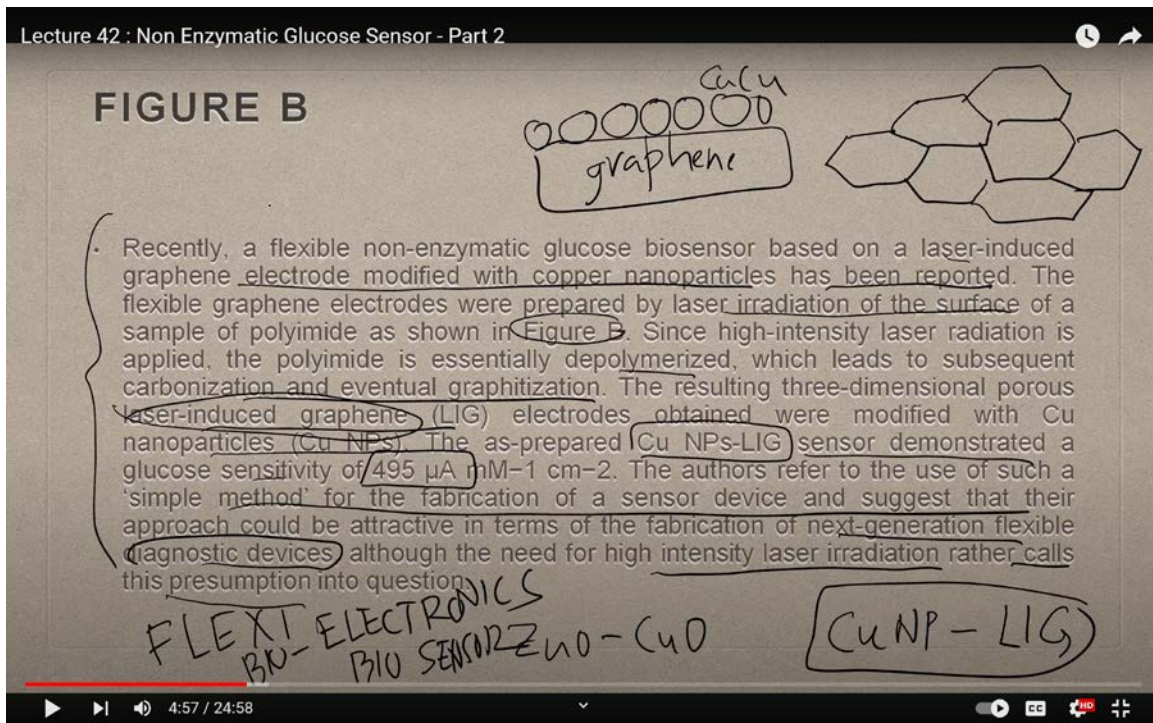 Lecture 42 : Non Enzymatic Glucose Sensor - Part 2
FIGURE B
CuCu
graphene
• Recently, a flexible non-enzymatic glucose biosensor based on a laser-induced
graphene electrode modified with copper nanoparticles has been reported. The
flexible graphene electrodes were prepared by laser irradiation of the surface of a
sample of polyimide as shown in Figure B. Since high-intensity laser radiation is
applied, the polyimide is essentially depolymerized, which leads to subsequent
carbonization and eventual graphitization. The resulting three-dimensional porous
laser-induced graphene (LIG) electrodes obtained were modified with Cu
nanoparticles (Cu NPs). The as-prepared Cu NPs-LIG sensor demonstrated a
glucose sensitivity of 495 μA mM−1 cm−2. The authors refer to the use of such a
'simple method' for the fabrication of a sensor device and suggest that their
approach could be attractive in terms of the fabrication of next-generation flexible
diagnostic devices, although the need for high intensity laser irradiation rather calls
this presumption into question.
FLEXI-ELECTRONICS
BIO-
BIO SENSOR
ZnO-CuO
CuNP-LIG
4:57 / 24:58
CC
HD